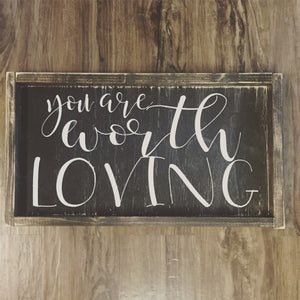 you are
worth
LOVING